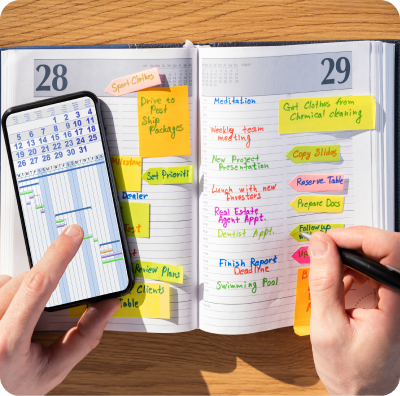 28
Sport Clothes
Drive to
Post
Ship
Packages
Set Prioriti
Dealer
Review Plans
Clients
Table
29
Meditation
Weekly team
meeting
New Project
Presentation
Lunch with new
Investors
Real Estate
Agent Appt.
Dentist Appt.
Finish Report
Deadline
Swimming Pool
Get Clothes from
Chemical cleaning
Copy Slides
Reserve Table
Prepare Docs
Follow up
1 2 3 4
5 6 7 8 9 10 11
12 13 14 15 16 17 18
19 20 21 22 23 24 25
26 27 28 29 30 31